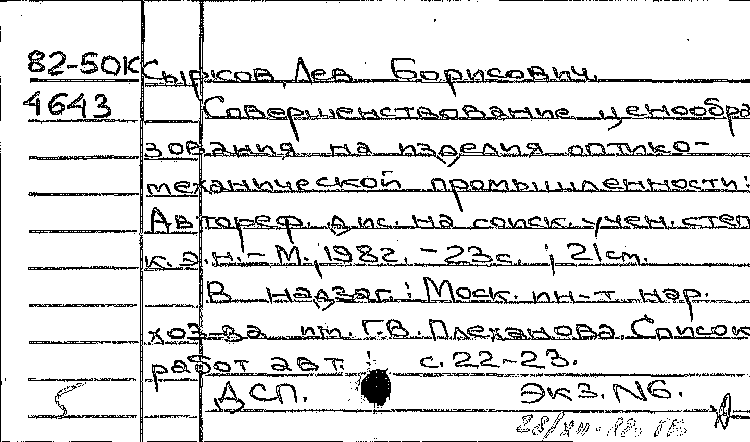 82-50К Сырков, Лев Борисович.
4643 Совершенствование ценообра
зования на изделия оптико-
механической промышленности:
Автореф. дис. на соиск. учен. степ
к.э.н. - М., 1982. - 23с. ; 21см.
В надзаг.: Моск. ин-т нар.
хоз-ва им. Г.В. Плеханова. Список
работ авт.: с. 22-23.
ДСП. Экз. №6.